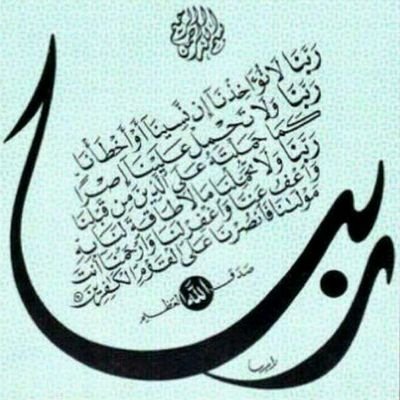 بسم الله الرحمن الرحيم
رَبَّنَا لَا تُؤَاخِذْنَا إِن نَّسِينَا أَوْ أَخْطَأْنَا
رَبَّنَا وَلَا تَحْمِلْ عَلَيْنَا إِصْرًا
كَمَا حَمَلْتَهُ عَلَى الَّذِينَ مِن قَبْلِنَا
رَبَّنَا وَلَا تُحَمِّلْنَا مَا لَا طَاقَةَ لَنَا بِهِ
وَاعْفُ عَنَّا وَاغْفِرْ لَنَا وَارْحَمْنَا أَنتَ
مَوْلَانَا فَانصُرْنَا عَلَى الْقَوْمِ الْكَافِرِينَ
صدق الله العظيم
ربنا